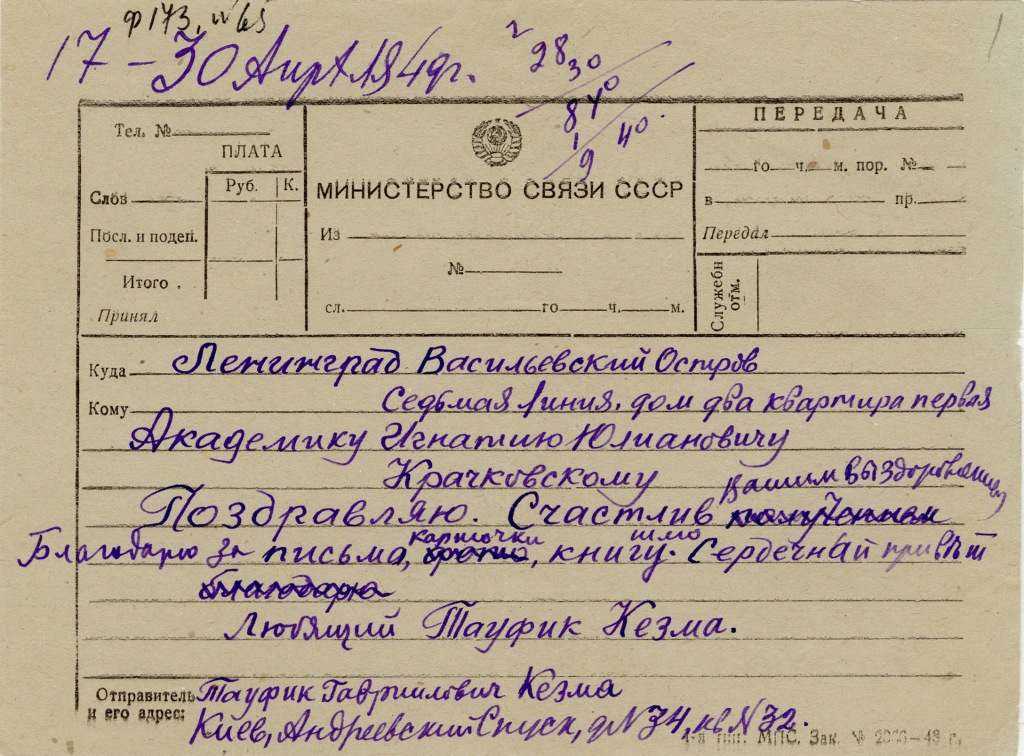 ф 173, № 65
1
17 – 30 Апр. 1949г.
2
28 30
8 40
1
9 40.
Тел. №
ПЛАТА
Руб. К.
Слов
Посл. и подеп.
Итого .
Принял
МИНИСТЕРСТВО СВЯЗИ СССР
Из
№
сл. го ч. м.
ПЕРЕДАЧА
го ч. м. пор. №
в пр.
Передал
Служебн
отм.
Куда Ленинград Васильевский Остров
Кому Седьмая Линия, дом два квартира первая
Академику Игнатию Юлиановичу
Крачковскому
Вашим выздоровлением
Поздравляю. Счастлив получением
карточки
Благодарю за письма, фото, книгу. Сердечный привет
благодарю
Любящий Тауфик Кезма.
Отправитель Тауфик Гавриилович Кезма
и его адрес: Киев, Андреевский Спуск, д N 34, кв N 32.
4-я тип. МПС. Зак. № –48 г.